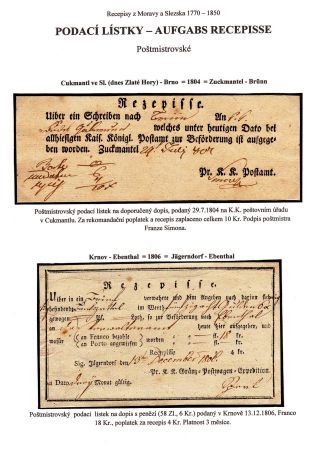 Recepisy z Moravy a Slezska 1770 – 1850
PODACÍ LÍSTKY – AUFGABS RECEPISSE
Poštmistrovské
Cukmantl ve Sl. (dnes Zlaté Hory) - Brno = 1804 = Zuckmantel - Brünn
Rezepisse.
Uiber ein Schreiben nach Brünn An
welches unter heutigen Dato bei
allhiesigen Kais. Königl. Postamt zur Beförderung ist aufgege-
ben worden. Zuckmantel
Pr. K. K. Postamt.
Poštmistrovský podací lístek na doporučený dopis, podaný 29.7.1804 na K.K. poštovním úřadu
v Cukmantlu. Za rekomandační poplatek a recepis zaplaceno celkem 10 Kr. Podpis poštmistra
Franze Simona.
Krnov - Ebenthal = 1806 = Jägerndorf - Ebenthal
Rezepisse.
Uiber in ein verwahrte und dem Angeben nach darinn
im Werth
gewogen Pf. Loth, so zur Beförderung nach Ebenthal
an heute hier aufgegeben und
wofür an Franco bezahlt st. 18 kr.
an Porto angewiesen fl. kr.
Recepisse 4 kr.
Sig. Jägerndorf den 13 December 806
Pr. K. K. Gränz-Postwagen-Expedition
a Dato Monat gültig.
Poštmistrovský podací lístek na dopis s penězi (58 Zl., 6 Kr.) podaný v Krnově 13.12.1806, Franco
18 Kr., poplatek za recepis 4 Kr. Platnost 3 měsíce.